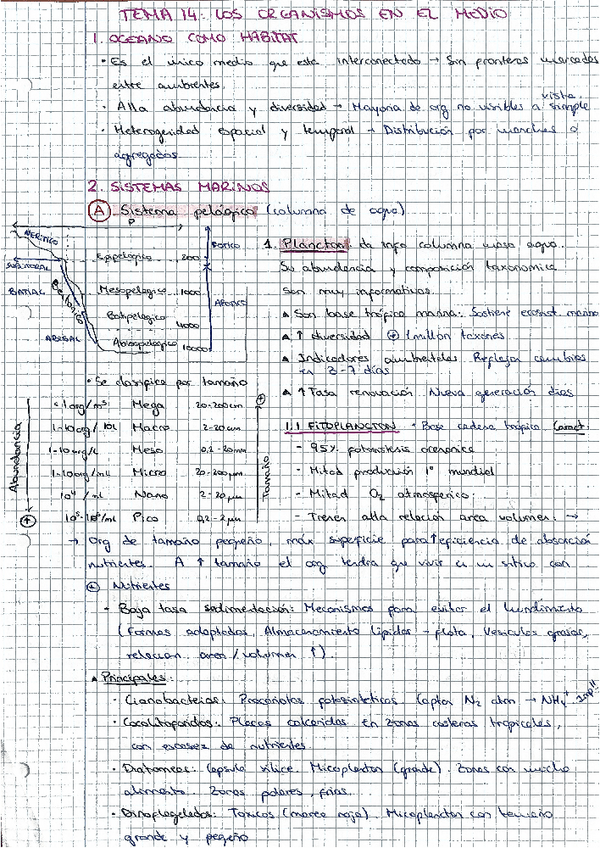 TEMA 14: LOS ORGANISMOS EN EL MEDIO
1. OCEANO COMO HABITAT
· Es el unico medio que esta interconectado → Sin fronteras marcadas
entre ambientes.
· Alta abundancia y diversidad → Mayoria de org no visibles a simple vista.
· Heterogeneidad espacial y temporal → Distribución por manchas o
agregados
2. SISTEMAS MARINOS
(A) Sistema pelágico (columna de agua)
NERITICO
P
FOTICO
Epipelagico 200
SUBLITORAL
BATIAL
BENTONICO
Mesopelagico 1000
AFOTICO
Batipelagico 4000
ABISAL
Abisopelagico 10000
1. Plancton da info columna masa agua.
Su abundancia y composición taxonomica
son muy informativos.
▲ Son base trófica marina: Sostiene ecosist. marino
▲ ↑ diversidad ⊕ 1 millon taxones
▲ Indicadores ambientales Reflejan cambios
en 3-7 días
▲ ↑ Tasa renovación Nueva generación dias
· Se clasifica por tamaño
Abundancia ⊕
<1 org/m³ Mega 20-200cm
1-10 org/10L Macro 2-20cm
1-10 org/L Meso 0,2-20mm
1-10 org/mL Micro 20-200µm
10⁴/mL Nano 2-20µm
10⁵-10⁶/ml Pico 0,2-2µm
⊕ Tamaño
1.1 FITOPLANCTON · Base cadena trófica Caract:
- 95% fotosintesis oceanica
- Mitad producción 1ª mundial
- Mitad O₂ atmosferico.
- Tienen alta relación area volumen: →
→ Org de tamaño pequeño, más superficie para ↑ eficiencia de absorción
nutrientes. A ↑ tamaño el org tendra que vivir en un sitio con
⊕ Nutrientes
- Baja tasa sedimentación: Mecanismos para evitar el hundimiento
(Formas adaptadas, Almacenamiento lipidos - flota, Vesiculas grasas,
relacion area/volumen ↑)
▲ Principales:
· Cianobacterias: Procariotas fotosinteticos. Captan N₂ atm → NH₄⁺ Imp"
· Cocolitoforidos: Placas calcareas. En zonas costeras tropicales,
con escasez de nutrientes.
· Diatomeas: Capsula silice. Micoplancton (grande). Zonas con mucho
alimento. Zonas polares, frias.
· Dinoflagelados: Toxicos (marea roja). Micoplancton con tamaño
grande y pequeño